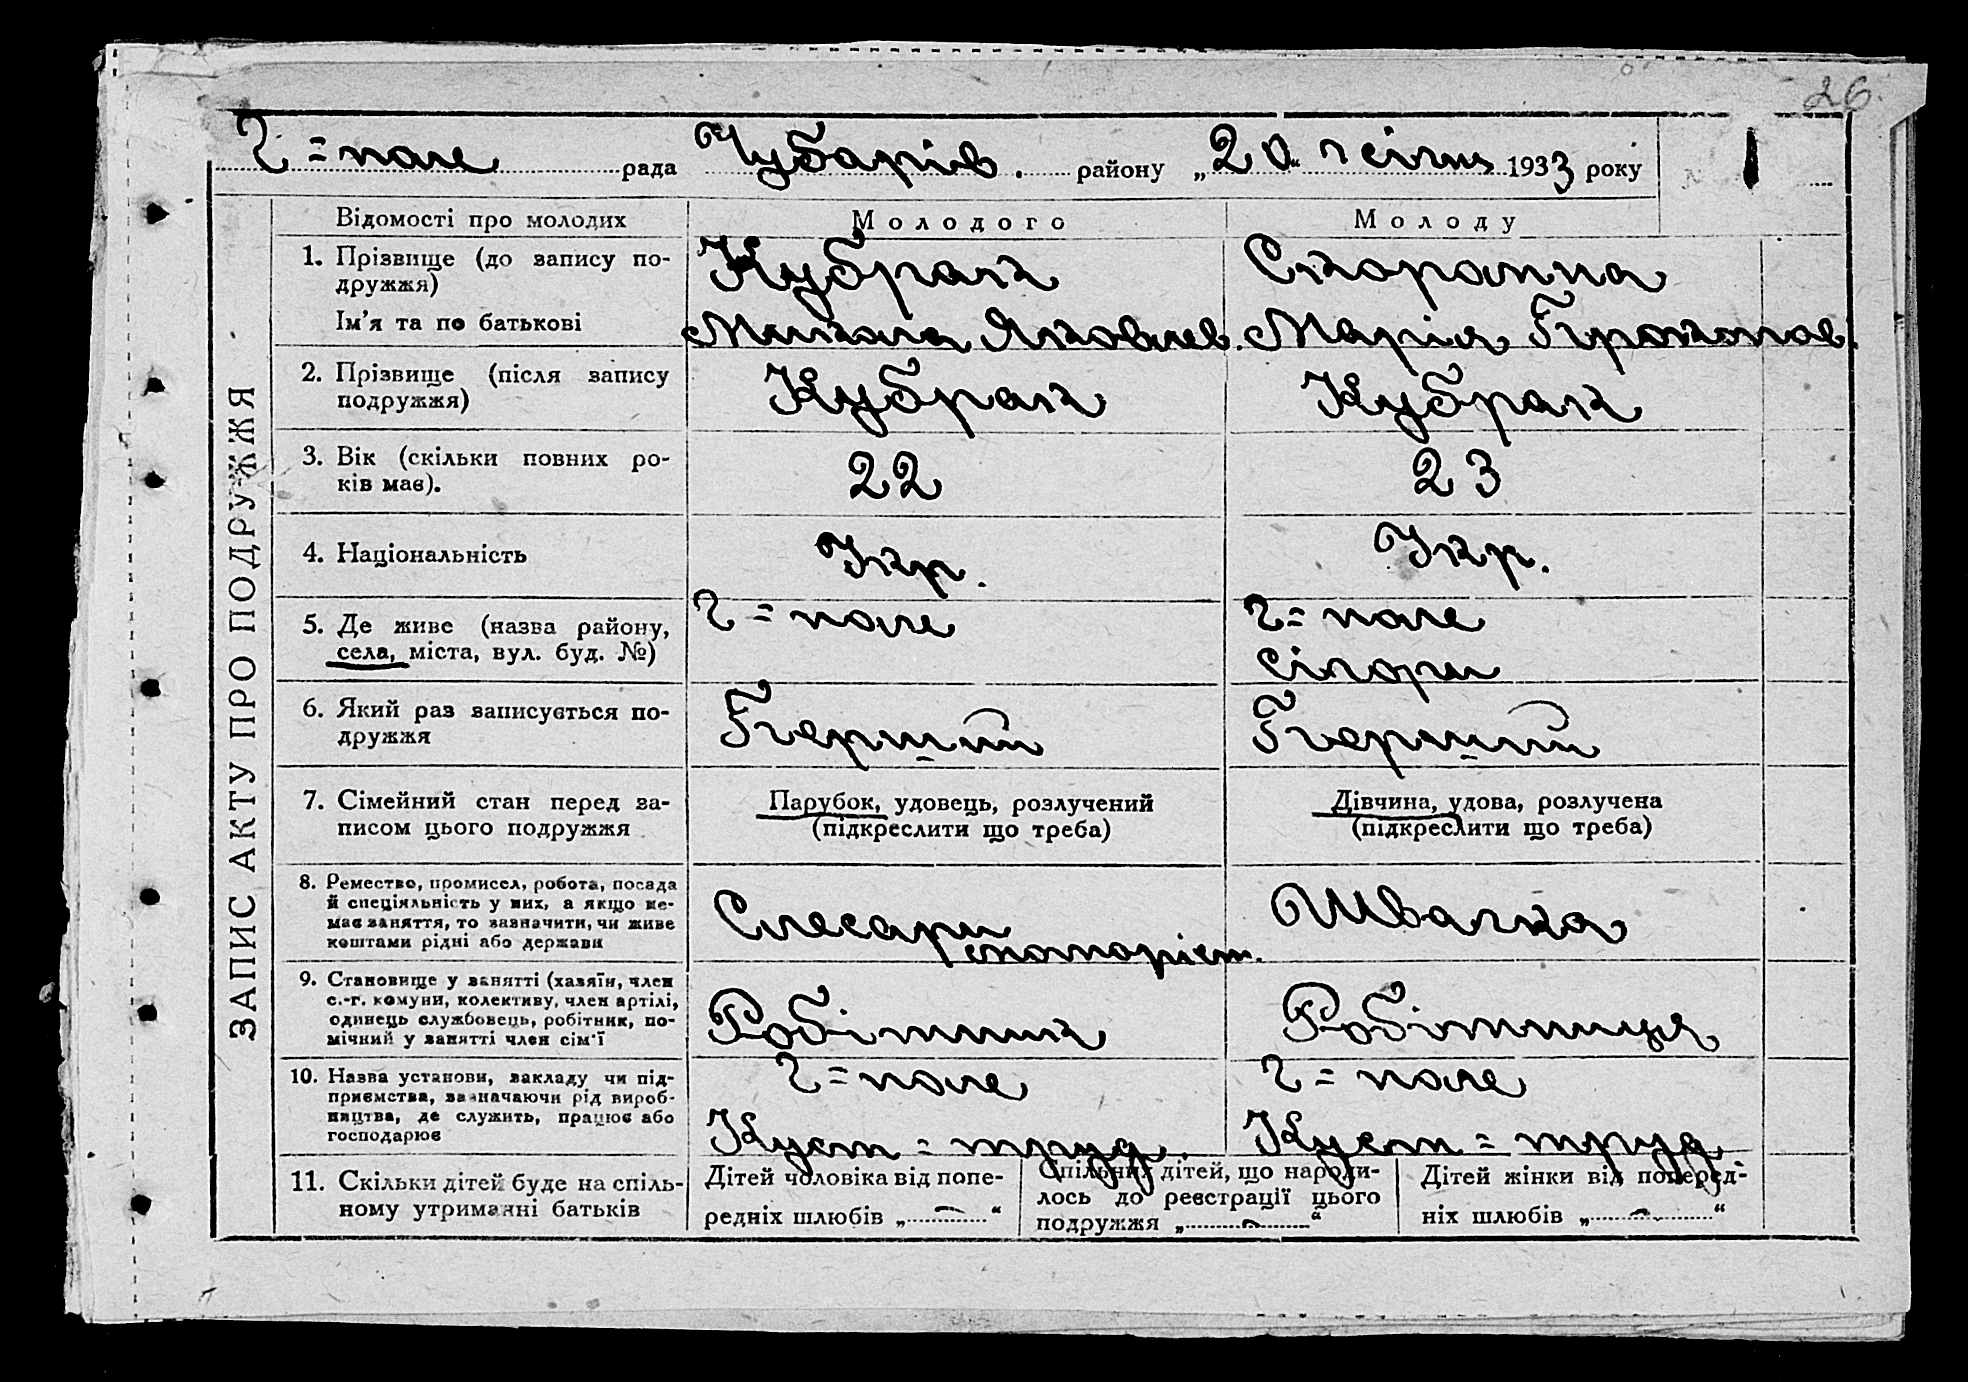 26.
Г=поле рада Чубарів. району „20“ січня 1933 року № 1
ЗАПИС АКТУ ПРО ПОДРУЖЖЯ
Відомості про молодих Молодого Молоду
1. Прізвище (до запису по-
дружжя) Кубрак Сторопна
Ім'я та по батькові Микола Яковлев. Марія Прокопов.
2. Прізвище (після запису
подружжя) Кубрак Кубрак
3. Вік (скільки повних ро-
ків має). 22 23
4. Національність Укр. Укр.
5. Де живе (назва району, Г=поле Г=поле
села, міста, вул. буд. №)
6. Який раз записується по-
дружжя Перший Перший
7. Сімейний стан перед за- Парубок, удовець, розлучений Дівчина, удова, розлучена
писом цього подружжя (підкреслити що треба) (підкреслити що треба)
8. Ремество, промисел, робота, посада
й спеціяльність у них, а якщо не-
має заняття, то зазначити, чи живе Слесарн Швачка
коштами рідні або держави
9. Становище у занятті (хазяїн, член
с.-г. комуни, колективу, член артілі,
одинець службовець, робітник, по- Робітник Робітниця
мічний у занятті член сім'ї
10. Назва установи, закладу чи під- Г=поле Г=поле
приємства, зазначаючи рід вироб-
ництва, де служить, працює або Куст=труд. Куст=труд.
господарює
11. Скільки дітей буде на спіль- Дітей чоловіка від попе- Спільних дітей, що народи- Дітей жінки від поперед-
ному утриманні батьків редніх шлюбів „ — “ лось до реєстрації цього ніх шлюбів „ — “
подружжя „ — “